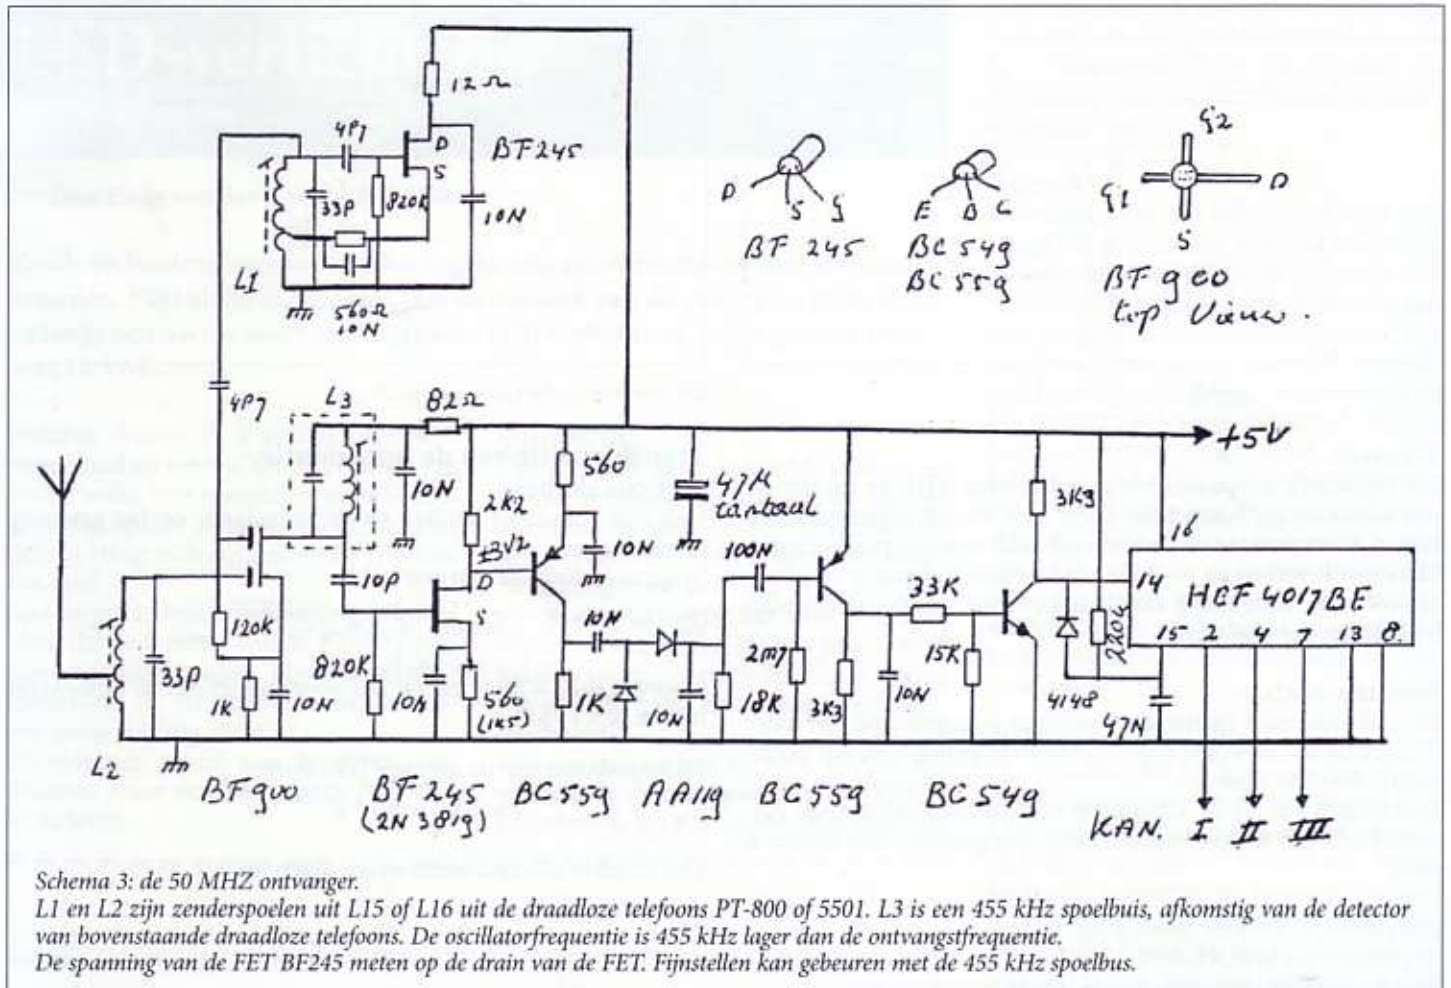 12Ω
4P7
D
S
BF245
33P
820K
10N
L1
560Ω
10N
D
S
g
BF 245
E
B
C
BC 549
BC 559
G2
G1
D
S
BF 900
top View.
4P7
L3
82Ω
+5V
10N
2K2
560
10N
47µ
tantaal
3K9
16
3V2
D
S
10P
100N
33K
14
HCF 4017BE
15 2 4 7 13 8
120K
33P
1K
10N
820K
10N
560
(1K5)
10N
1K
10N
18K
2M7
3K9
10N
15K
4148
220K
47N
L2
BF900
BF 245
(2N3819)
BC559
AA119
BC559
BC549
KAN. I II III
Schema 3: de 50 MHZ ontvanger.
L1 en L2 zijn zenderspoelen uit L15 of L16 uit de draadloze telefoons PT-800 of 5501. L3 is een 455 kHz spoelbuis, afkomstig van de detector
van bovenstaande draadloze telefoons. De oscillatorfrequentie is 455 kHz lager dan de ontvangstfrequentie.
De spanning van de FET BF245 meten op de drain van de FET. Fijnstellen kan gebeuren met de 455 kHz spoelbus.